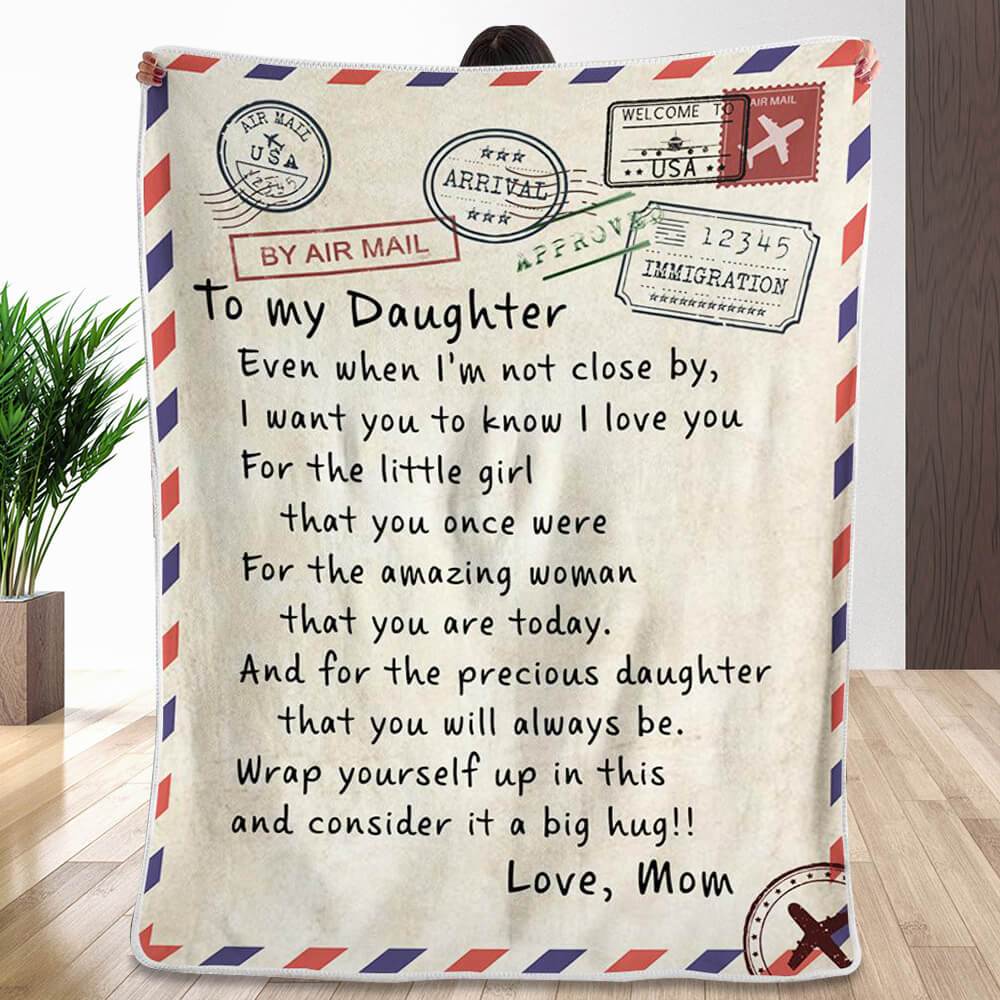 AIR MAIL
USA
12345
ARRIVAL
WELCOME TO
USA
AIR MAIL
BY AIR MAIL
APPROVED
12345
IMMIGRATION
To my Daughter
Even when I'm not close by,
I want you to know I love you
For the little girl
that you once were
For the amazing woman
that you are today.
And for the precious daughter
that you will always be.
Wrap yourself up in this
and consider it a big hug!!
Love, Mom